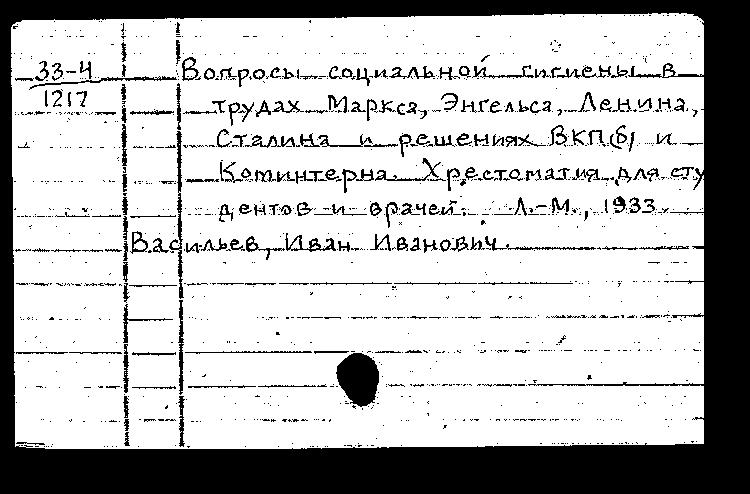 33-4
1217
Вопросы социальной гигиены в
трудах Маркса, Энгельса, Ленина,
Сталина и решениях ВКП(б) и
Коминтерна. Хрестоматия для сту
дентов и врачей. Л.-М., 1933.
Васильев, Иван Иванович.